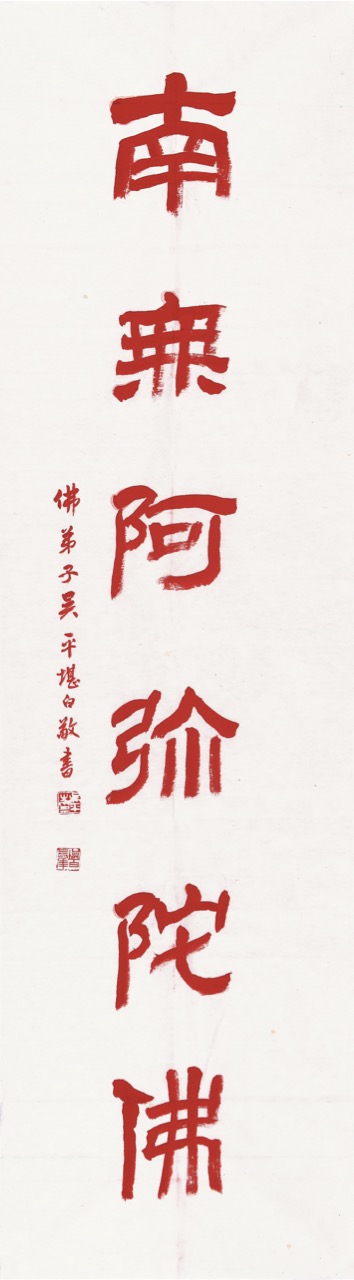 南無阿弥陀佛
佛弟子吴平堪白敬書